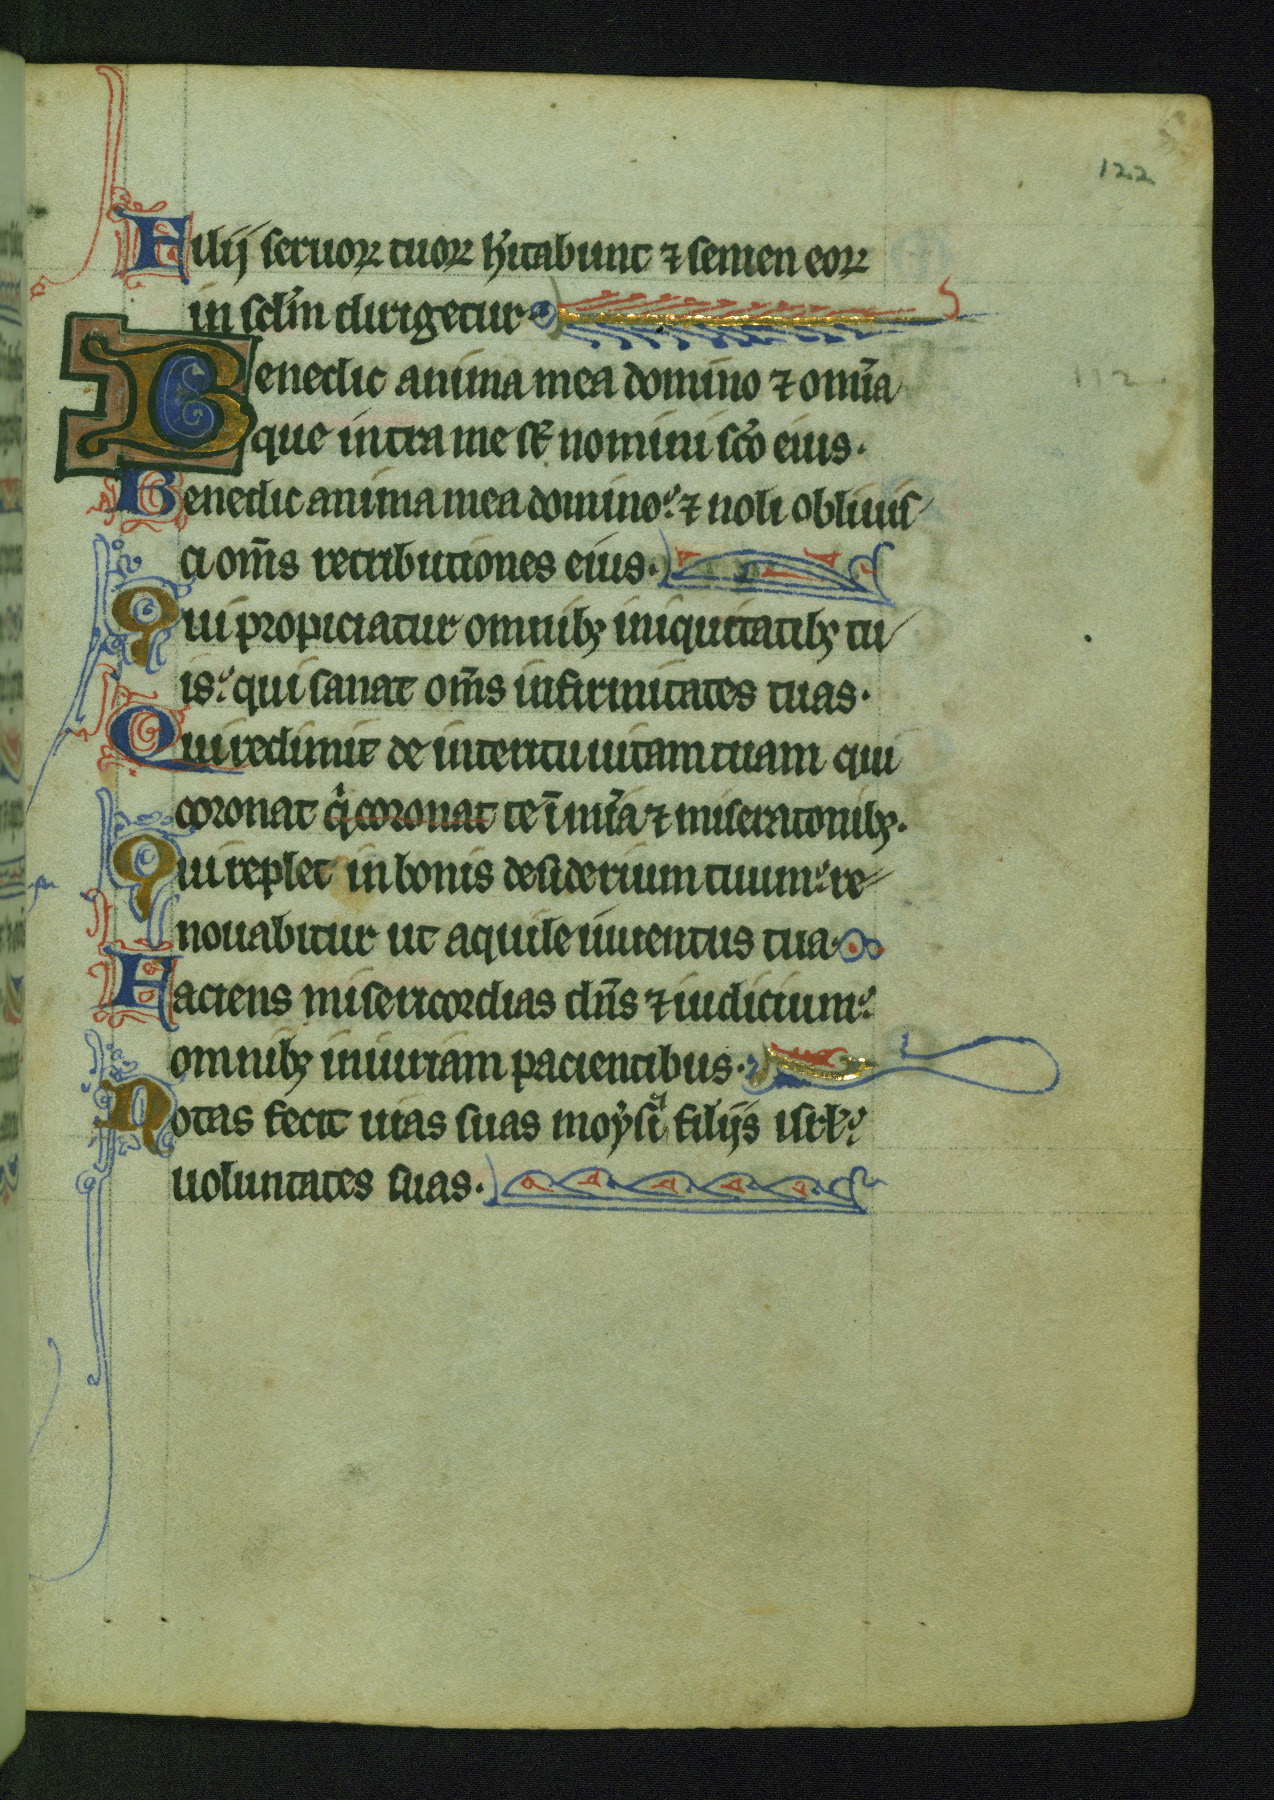 122
Filij seruoꝝ tuoꝝ h̓itabunt ⁊ semen eoꝝ
in sc̄lm dirigetur
Benedic anima mea domino ⁊ om̄ia
que intra me st̄ nomini sc̄o eius.
112
Benedic anima mea domino: ⁊ noli obliuis
ci om̄s retributiones eius.
Qui propiciatur omnibꝫ iniquitatibꝫ tu
is: qui sanat om̄s infirmitates tuas.
Qui redimit de interitu uitam tuam qui
coronat q̇ coronat te ī mīa ⁊ miseratonibꝫ.
Qui replet in bonis desiderium tuum: re
nouabitur ut aquile iuuentus tua.
Faciens misericordias dn̄s ⁊ iudicium:
omnibꝫ iniuriam pacientibus.
Notas fecit uias suas moysi filijs isrl̄:
uoluntates suas.